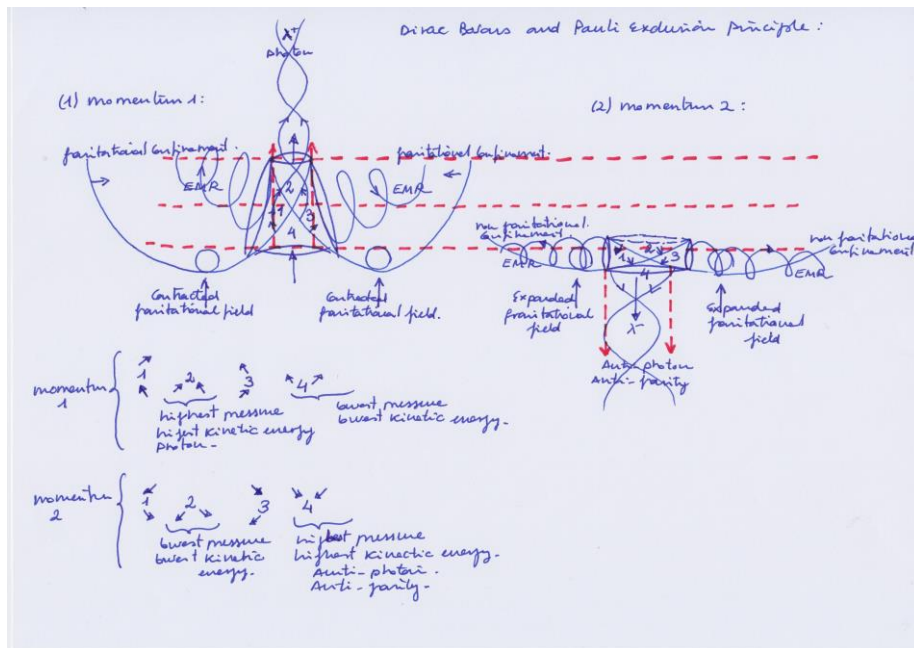 Dirac Bosons and Pauli Exclusion Principle:
λ+
photon
(1) Momentum 1:
(2) Momentum 2:
gravitational confinement.
gravitational confinement.
EMR
EMR
1
2
3
4
non gravitational
confinement
non gravitational
confinement
EMR
EMR
1
2
3
4
Contracted
gravitational field
Contracted
gravitational field.
Expanded
gravitational
field
Expanded
gravitational
field
λ-
Anti-photon
Anti-gravity
momentum
1
1
2
3
4
highest pressure
highest kinetic energy
photon-
lowest pressure
lowest kinetic energy-
momentum
2
1
2
3
4
lowest pressure
lowest kinetic
energy-
highest pressure
highest kinectic energy-
Anti-photon.
Anti-gravity-